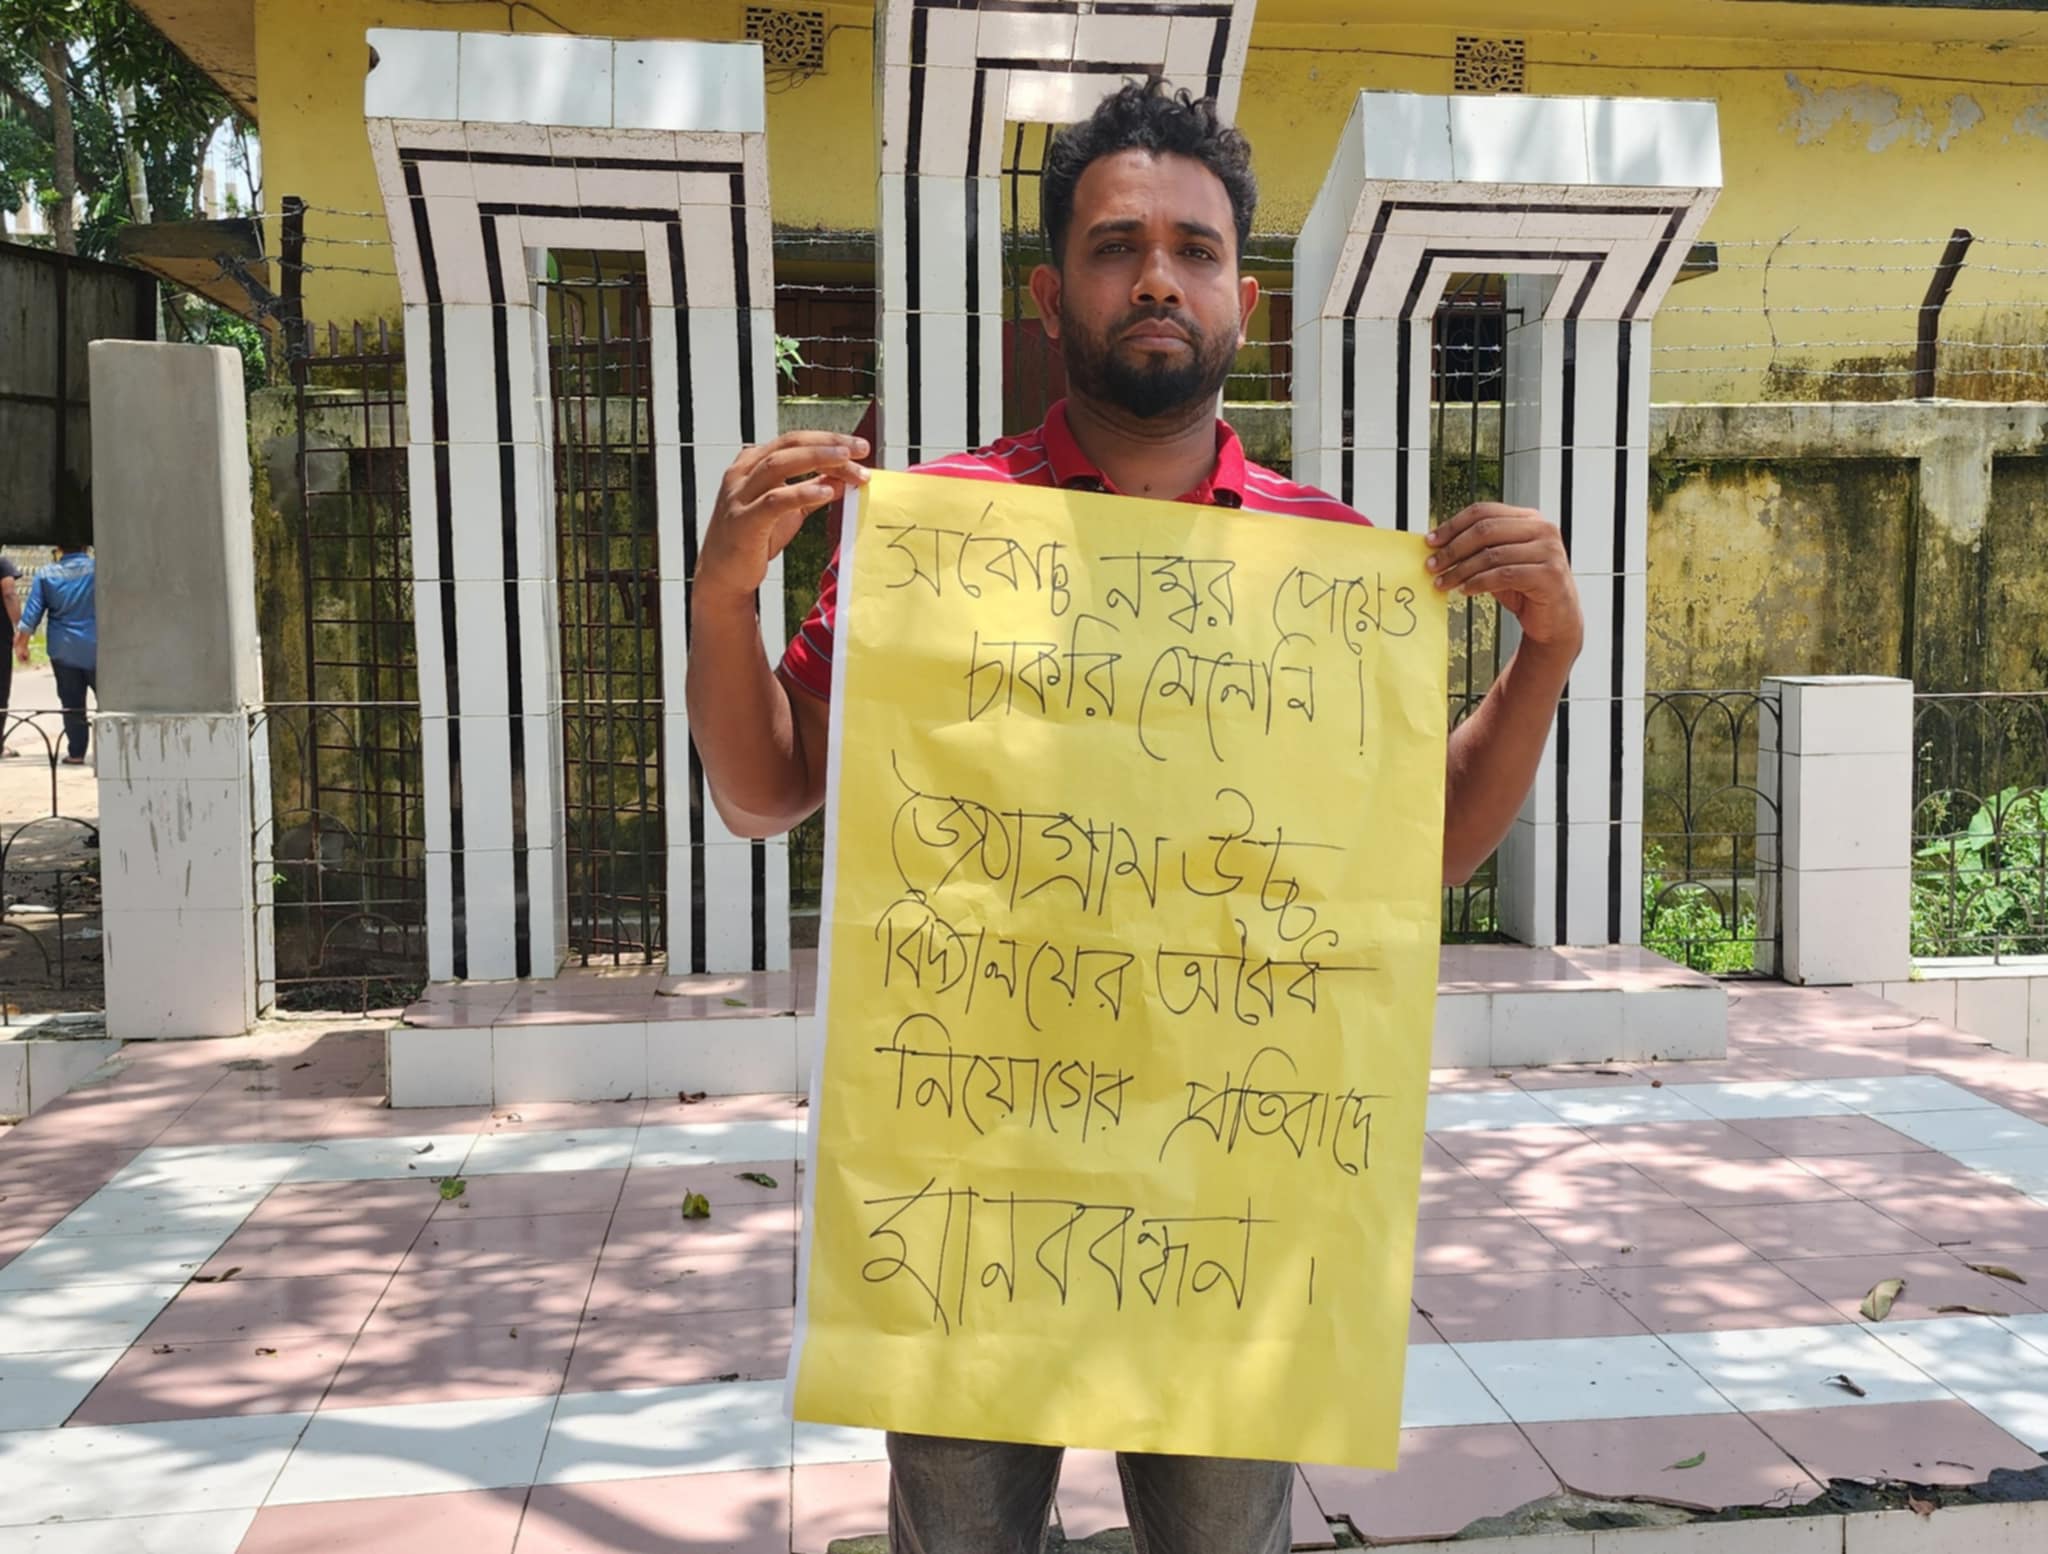 সর্বোচ্চ নম্বর পেয়েও
চাকরি মেলেনি !
জৈঠাগ্রাম উচ্চ
বিদ্যালয়ের অবৈধ
নিয়োগের প্রতিবাদে
মানববন্ধন ।